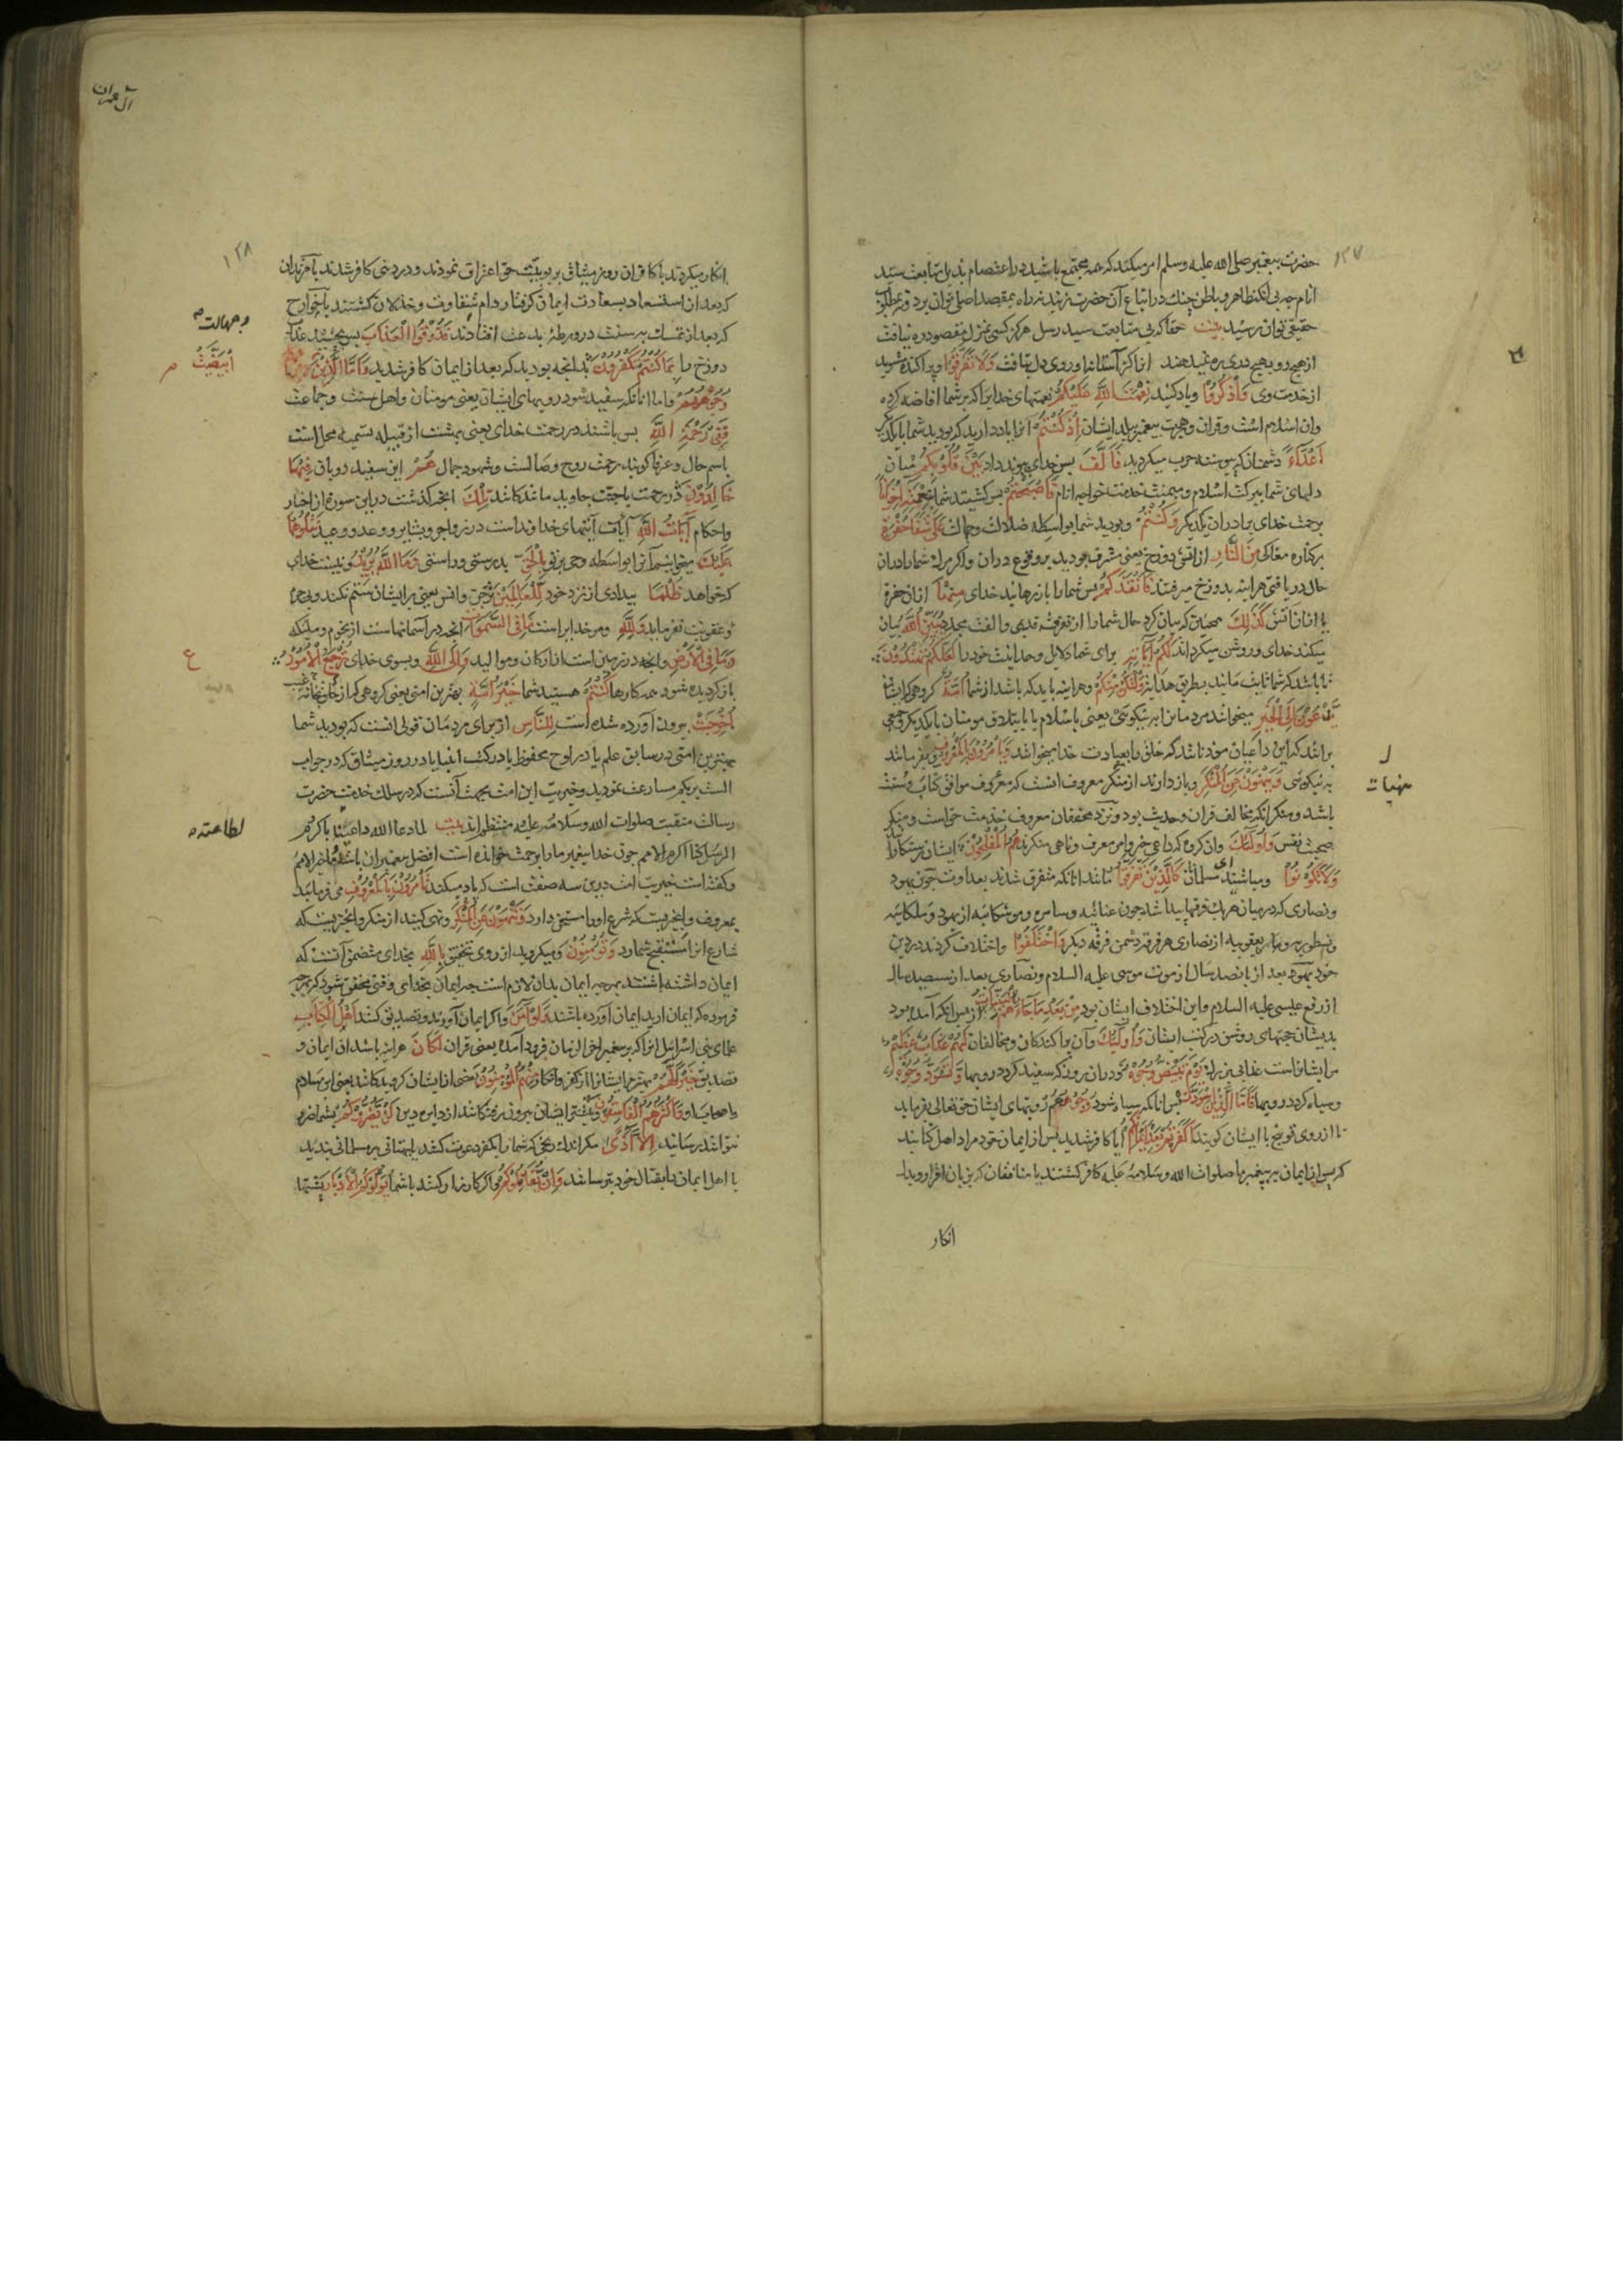 ۱۳۷
حضرت پیغمبر صلی الله علیه وسلم امر میکند که همه مجتمع باشید در اعتصام بذیل متابعت سید
انام چه بی آنکه ظاهر و باطن چنگ در اتباع آن حضرت زنند نه راه بمقصد اصلی توان برد و نه بمطلوب
حقیقی توان رسید بیت حقا که بی متابعت سید رسل هرگز کسی بمنزل مقصود ره نیافت
از هیچ رو بهیچ دری ره نمیدهند انرا که از آستانه او روی دل بتافت وَلَا تَفَرَّقُوا و پراکنده مشوید
از خدمت وی وَاذْكُرُوا و یاد کنید نِعْمَتَ اللَّهِ عَلَيْكُمْ نعمتهای خدایرا که بر شما افاضه کرده
وان اسلام است و قران و هجرت پیغمبر ببلد ایشان إِذْ كُنْتُمْ انرا یاد دارید که بودید شما با یکدیگر
أَعْدَاءً دشمنان که پیوسته حرب میکردید فَأَلَّفَ پس خدای پیوند داد بَيْنَ قُلُوبِكُمْ میان
دلهای شما ببرکت اسلام و میمنت خدمت خواجه انام فَأَصْبَحْتُمْ پس گشتید شما بِنِعْمَتِهِ إِخْوَانًا
برحمت خدای برادران یکدیگر وَكُنْتُمْ و بودید شما بواسطه ضلالت و جهالت عَلَى شَفَا حُفْرَةٍ
بر کناره مغاکی مِنَ النَّارِ از اتش دوزخ یعنی مشرف بودید بر وقوع دران و اگر مرگ شما را دران
حال دریافتی هراینه بدوزخ میرفتید فَأَنْقَذَكُمْ پس شما را باز رهانید خدای مِنْهَا ازان حفره
یا ازان اتش كَذَلِكَ همچنین که بیان کرد حال شما را از تفرقه قدیم و الفت مجدد يُبَيِّنُ اللَّهُ بیان
میکند خدای و روشن میگرداند لَكُمْ آيَاتِهِ برای شما دلایل وحدانیت خود را لَعَلَّكُمْ تَهْتَدُونَ
تا باشد که شما ثابت مانید بطریق هدایت وَلْتَكُنْ مِنْكُمْ و هراینه باید که باشد از شما أُمَّةٌ گروهی که ایشان
يَدْعُونَ إِلَى الْخَيْرِ میخوانند مردمانرا به نیکوئی یعنی باسلام یا بایتلاف مومنان با یکدیگر و جمعی
برانند که این داعیان موذنانند که خلق را بعبادت خدا میخوانند وَيَأْمُرُونَ بِالْمَعْرُوفِ و میفرمایند
به نیکوئی وَيَنْهَوْنَ عَنِ الْمُنْكَرِ و باز دارند از منکر معروف انست که موافق کتاب و سنت
منهیات
باشد و منکر انکه مخالف قران و حدیث بود و نزد محققان معروف خدمت حق است و منکر
صحبت نفس وَأُولَئِكَ وان گروه که داعی خیر و امر معرف و ناهی منکرند هُمُ الْمُفْلِحُونَ ایشان رستگارانند
وَلَا تَكُونُوا و مباشید ای مسلمانان كَالَّذِينَ تَفَرَّقُوا مانند انانکه متفرق شدند بعداوت چون یهود
و نصاری که در میان هر یک فرقها پیدا شد چون عنانیه و سامره و موشکانیه از یهود و ملکانیه
و نسطوریه و یعقوبیه از نصاری هر فرقه دشمن فرقه دیگر وَاخْتَلَفُوا و اختلاف کردند در دین
خود یهود بعد از پانصد سال از موت موسی علیه السلام و نصاری بعد از سیصد سال
از رفع عیسی علیه السلام و این اختلاف ایشان بود مِنْ بَعْدِ مَا جَاءَهُمُ الْبَيِّنَاتُ از پس انکه آمده بود
بدیشان حجتهای روشن در کتب ایشان وَأُولَئِكَ وآن پراکندگان و مخالفان لَهُمْ عَذَابٌ عَظِيمٌ
مر ایشانراست عذابی بزرگ يَوْمَ تَبْيَضُّ وُجُوهٌ دران روز که سفید گردد رویها وَتَسْوَدُّ وُجُوهٌ
و سیاه گردد رویها فَأَمَّا الَّذِينَ اسْوَدَّتْ پس انانکه سیاه شود وُجُوهُهُمْ رویهای ایشان حق تعالی فرماید
تا از روی توبیخ با ایشان گویند أَكَفَرْتُمْ بَعْدَ إِيمَانِكُمْ آیا کافر شدید پس از ایمان خود مراد اهل کتابند
که پس از ایمان به پیغمبر ما صلوات الله وسلامه علیه کافر گشتند یا منافقان که بزبان اقرار و بدل
انکار
آل عمران
۱۳۸
انکار میکردند یا کافران روز میثاق بربوبیت حق اعتراف نمودند و در دنیی کافر شدند یا مرتدان
که بعد از استسعاد بسعادت ایمان گرفتار دام شقاوت و خذلان گشتند یا خوارج
و جهالت
که بعد از تمسک به سنت در ورطه بدعت افتادند فَذُوقُوا الْعَذَابَ پس بچشید عذاب
ابْيَضَّتْ
دوزخ را بِمَا كُنْتُمْ تَكْفُرُونَ بدانچه بودید که بعد از ایمان کافر شدید وَأَمَّا الَّذِينَ
وُجُوهُهُمْ و اما انانکه سفید شود رویهای ایشان یعنی مومنان و اهل سنت و جماعت
فَفِي رَحْمَةِ اللَّهِ پس باشند در رحمت خدای یعنی بهشت از قبیل تسمیه محل است
باسم حال و عرفا گویند رحمت روح وصالست و شهود جمال هُمْ این سفید رویان فِيهَا
خَالِدُونَ در رحمت یا جنت جاوید مانندگانند تِلْكَ انچه گذشت درین سوره از اخبار
و احکام آيَاتُ اللَّهِ آیتهای خداونداست در زواجر و بشایر و وعد و وعید نَتْلُوهَا
عَلَيْكَ میخوانیم آنرا بواسطه وحی بر تو بِالْحَقِّ بدرستی و راستی وَمَا اللَّهُ يُرِيدُ و نیست خدای
که خواهد ظُلْمًا بیدادی از نزد خود لِلْعَالَمِينَ بر جن و انس یعنی بر ایشان ستم نکند و بی جرم
عقوبت نفرماید وَلِلَّهِ و مر خدایراست مَا فِي السَّمَوَاتِ انچه در آسمانهاست از نجوم و ملئکه
ع
وَمَا فِي الْأَرْضِ و انچه در زمین است از ارکان و موالید وَإِلَى اللَّهِ و بسوی خدای تُرْجَعُ الْأُمُورُ
باز گردیده شود همه کارها كُنْتُمْ هستید شما خَيْرَ أُمَّةٍ بهترین امتی یعنی گروهی که از
أُخْرِجَتْ بیرون آورده شده است لِلنَّاسِ از برای مردمان قولی انست که بودید شما
بهترین امتی در سابق علم یا در لوح محفوظ یا در کتب انبیا یا در روز میثاق که در جواب
الست بربکم مسارعت نمودید و خیریت این امت بجهت آنست که در سلک خدمت حضرت
رسالت منقبت صلوات الله وسلامه علیه منتظم اند بیت لما دعا الله داعینا باکرم
لطاعته
الرسل کنا اکرم الامم چون خدا پیغمبر ما را برحمت خوانده است افضل پیغمبران باشد ما خیر الامم
و گفته است خیریت امت بدین سه صفت است که یاد میکند تَأْمُرُونَ بِالْمَعْرُوفِ می فرمایید
بمعروف و انچیزیست که شرع اورا مستحسن دارد وَتَنْهَوْنَ عَنِ الْمُنْكَرِ و نهی کنید از منکر و انچیزیست که
شارع انرا مستقبح شمارد وَتُؤْمِنُونَ و میگروید از روی تحقیق بِاللَّهِ بخدای متضمن آنست که
ایمان داشته باشند بهرچه ایمان بدان لازم است چه ایمان بخدای وقتی محقق شود که بهرچه
فرموده که ایمان ارید ایمان آورده باشند وَلَوْ آمَنَ و اگر ایمان آورند و تصدیق کنند أَهْلُ الْكِتَابِ
علمای بنی اسرائیل انرا که بر پیغمبر اخر الزمان فرود آمده یعنی قران لَكَانَ هراینه باشد ان ایمان و
تصدیق خَيْرًا لَهُمْ بهتر مر ایشانرا از کفر و انکار مِنْهُمُ الْمُؤْمِنُونَ بعضی از ایشان گرویدگانند یعنی ابن سلام
و اصحاب او وَأَكْثَرُهُمُ الْفَاسِقُونَ و بیشتر ایشان بیرون رفتگانند از دایره دین لَنْ يَضُرُّوكُمْ بشما ضرر
نتوانند رسانید إِلَّا أَذًى مگر اندک رنجی که شما را بکفر دعوت کنند یا بهتانی بر مسلمانی بندید
یا اهل ایمان را بقتال خود بترسانند وَإِنْ يُقَاتِلُوكُمْ و اگر کارزار کنند باشما يُوَلُّوكُمُ الْأَدْبَارَ پشتها